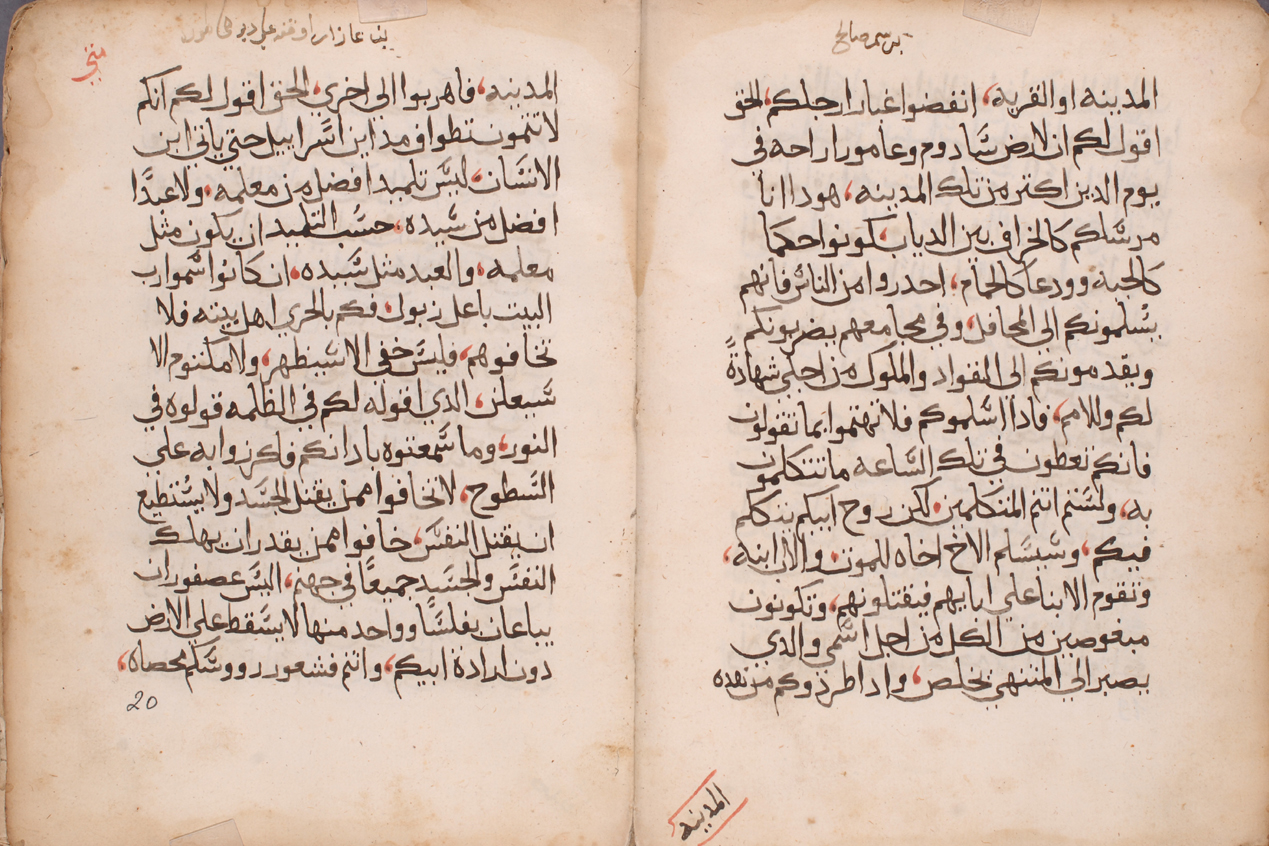 برسم صالح
المدينه او القريه، انفضوا غبار ارجلكم، الحق
اقول لكم ان لارض سادوم وعامورا راحه في
يوم الدين اكتر من تلك المدينه، هودا انا
مرسلكم كالخراف بين الدياب، كونوا حكما
كالحيه وودعا كالحمام، احدروا من الناس فانهم
يسلمونكم الي المحافل، وفي مجامعهم يضربونكم
ويقدمونكم الي القواد والملوك من اجلي شهادةً
لكم وللامم، فادا اسلموكم فلا تهتموا بما تقولون
فانكم تعطون في تلك الساعه ما تتكلمون
به، ولستم انتم المتكلمين، لكن روح ابيكم يتكلم
فيكم، وسيسلم الاخ اخاه للموت، والاب ابنه،
وتقوم الابنا علي ابايهم فيقتلونهم، وتكونون
مبغوضين من الكل من اجل اسمي والدي
يصبر الي المنتهي يخلص، وادا طردوكم من هده
المدينه
متي
المدينه، فاهربوا الي اخري، الحق اقول لكم انكم
لا تتمون تطوافو مداين اسراييل حتي ياتي ابن
الانسان، ليس تلميد افضل من معلمه، ولا عبدًا
افضل من سيده، حسب التلميد ان يكون مثل
معلمه، والعبد مثل سيده، ان كانوا سموا رب
البيت باعل زبول، فكم بالحري اهل بيته فلا
تخافوهم، فليس خفي الا سيظهر، ولا مكتوم الا
سيعلن، الدي اقوله لكم في الظلمه قولوه في
النور، وما سمعتوه بادانكم فاكرزوا به علي
السطوح، لا تخافوا ممن يقتل الجسد ولا يستطيع
ان يقتل النفس، خافوا ممن يقدر ان يهلك
النفس والجسد جميعًا في جهنم، اليس عصفوران
يباعان بفلسًا وواحد منها لا يسقط علي الارض
دون ارادة ابيكم، وانتم فشعور رووسكم محصاه،
20